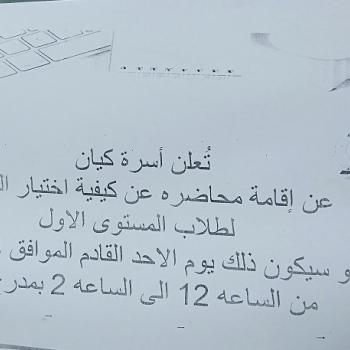 تُعلن أسرة كيان
عن إقامة محاضره عن كيفية اختيار
لطلاب المستوى الاول
و سيكون ذلك يوم الاحد القادم الموافق
من الساعه 12 الى الساعه 2 بمدرج